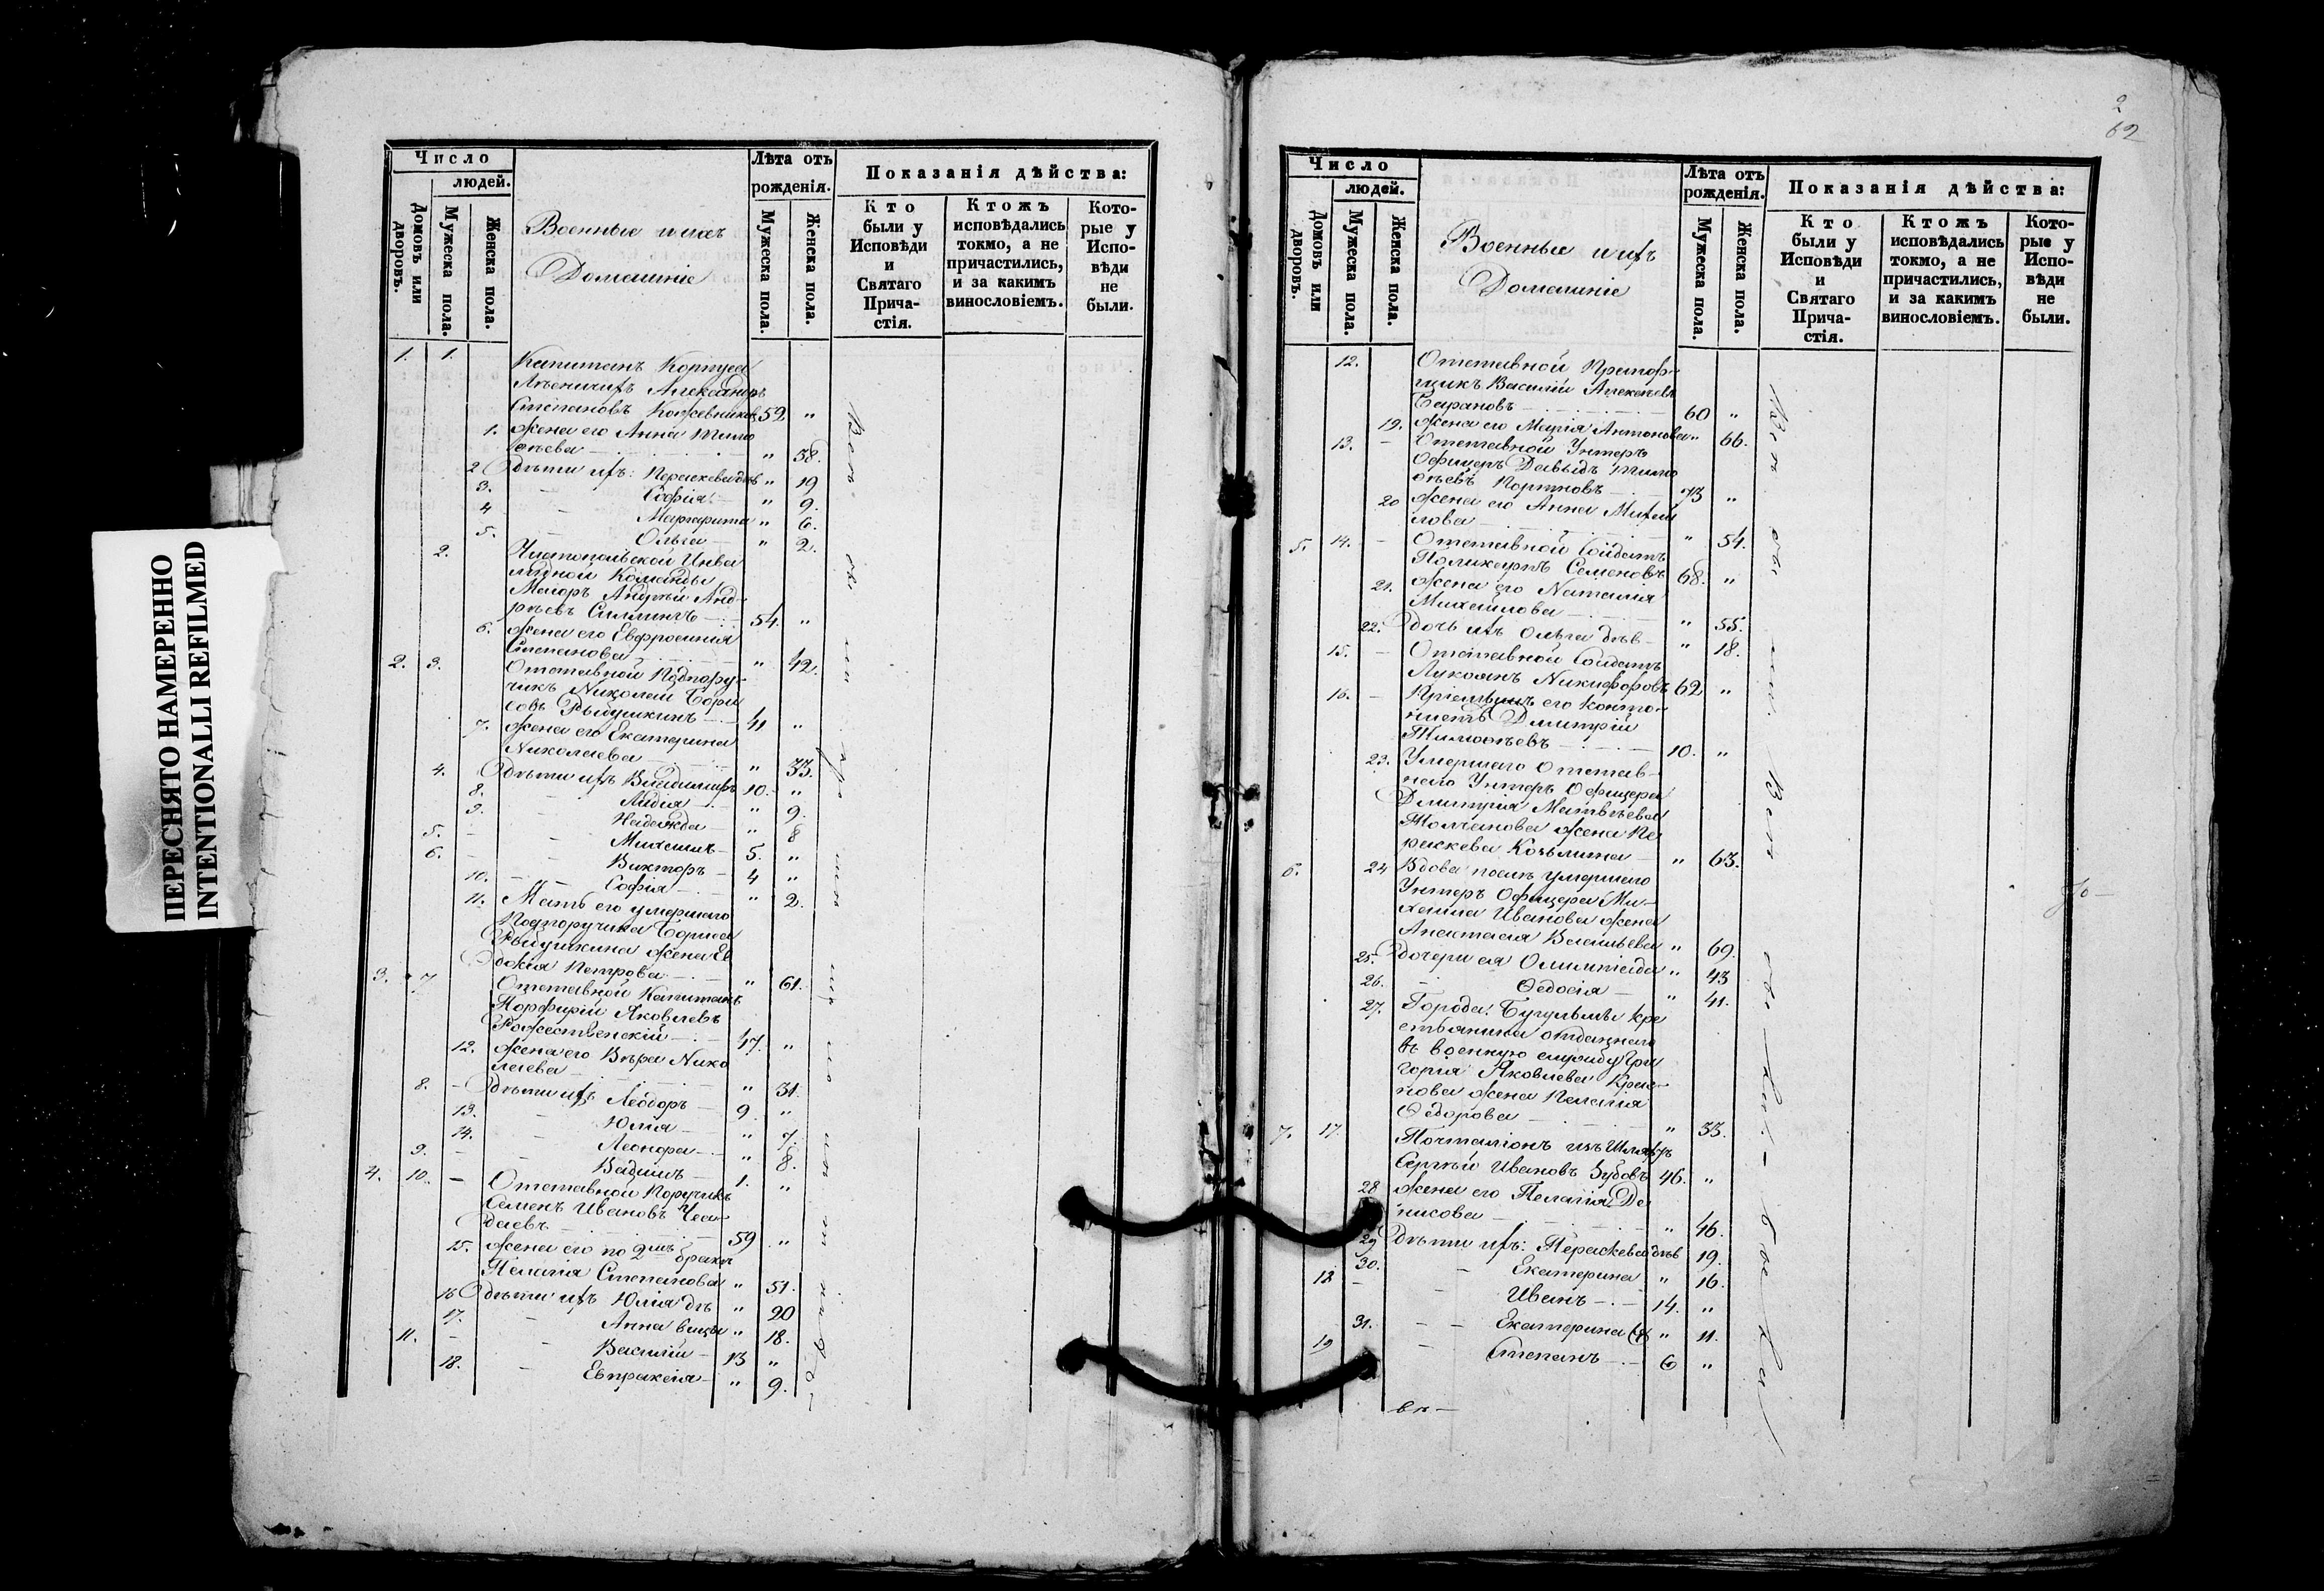 ПЕРЕСНЯТО НАМЕРЕННО
INTENTIONALLI REFILMED
Число
людей.
Домовъ или дворовъ.
Мужеска пола.
Женска пола.
Военные и ихъ
Домашніе
Лѣта отъ
рожденія.
Мужеска пола.
Женска пола.
Показанія дѣйства:
Кто
были у
Исповѣди
и
Святаго
Прича-
стія.
Ктожъ
исповѣдались
токмо, а не
причастились,
и за какимъ
винословіемъ.
Кото-
рые у
Испо-
вѣди
не
были.
1. 1. Капитанъ Корпуса
Лѣсничихъ Александръ
Степановъ Кожевниковъ 52 "
1. жена его Анна Тимо
ѳеева " 58.
2 Дѣти ихъ: Параскева дѣв " 19
3. Софія " 9.
4 Маргарита " 6.
5. Ольга " 2.
2. Чистопольской Инва
лидной Команды
Маіоръ Андрей Анд-
реевъ 54. "
6. жена его Евфросинія
Степанова " 42.
2. 3. Отставной Подпору-
чикъ Николай Бори
совъ Рыбушкинъ 41 "
7. жена его Екатерина
Николаева " 33.
4. Дѣти ихъ Владимиръ 10. "
8. Лидія " 9.
9. Надежда " 8
5. Михаилъ 5. "
6. Викторъ 4 "
10. Софія " 2.
11. Мать его умершаго
Подпоручика Бориса
Рыбушкина жена Ев
докія Петрова " 61.
3. 7 Отставной Капитанъ
Порфирій Яковлевъ
Рожественскій 47. "
12. жена его Вѣра Нико
лаева " 31.
8. Дѣти ихъ Леодоръ 9. "
13. Юлія " 7.
14. Леонора " 8.
9. Вадимъ 1. "
4. 10. Отставной Поручикъ
Семенъ Ивановъ Чеа-
даевъ 59 "
15. жена его по 2мъ бракѣ
Пелагія Степанова " 51.
16 Дѣти ихъ Юлія дѣ " 20
17. Анна " 18.
11. Василій 13 "
18. Евпраксія " 9.
2
62
Число
людей.
Домовъ или дворовъ.
Мужеска пола.
Женска пола.
Военные и ихъ
Домашніе
Лѣта отъ
рожденія.
Мужеска пола.
Женска пола.
Показанія дѣйства:
Кто
были у
Исповѣди
и
Святаго
Прича-
стія.
Ктожъ
исповѣдались
токмо, а не
причастились,
и за какимъ
винословіемъ.
Кото-
рые у
Испо-
вѣди
не
были.
12. Отставной Прапор-
щикъ Василій Алексѣевъ
Барановъ 60 "
19. жена его Марія Антонова " 66.
13. Отставной Унтеръ
Офицеръ Давыдъ Тимо
ѳеевъ Портновъ 73 "
20 жена его Анна Михай
лова " 54.
5. 14. Отставной Солдатъ
Поликарпъ Семеновъ 68. "
21. жена его Наталія
Михайлова " 55.
22. Дочь ихъ Ольга дѣв " 18.
15. Отставной Солдатъ
Лукоянъ Никифоровъ 62 "
16. Пріемышъ его Канто-
нистъ Димитрій
Тимоѳеевъ 10. "
23. Умершаго Отстав-
наго Унтеръ Офицера
Димитрія Матвѣева
Толчанова жена Па
раскева Козьмина " 63.
6. 24 Вдова послѣ умершаго
Унтеръ Офицера Ми-
хаила Иванова жена
Анастасія Васильева " 69.
25. Дочери ея Олимпіада " 43
26. Ѳедосія " 41.
27. Города Бугульмы кре
стьянина отданнаго
въ военную службу Гри
горія Яковлева Крас-
нова жена Пелагія
Ѳедорова " 33.
7. 17. Почталіонъ
Сергѣй Ивановъ Зубовъ 46. "
28 жена его Пелагія Де
нисова " 46.
29 Дѣти ихъ: Параскева дѣв 19.
30. Екатерина " 16.
18 Иванъ 14. "
31. Екатерина " 11.
19 Степанъ 6 "